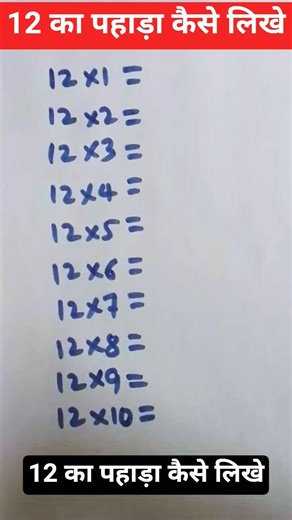 12 का पहाड़ा कैसे लिखे
12×1=
12×2=
12×3=
12×4=
12×5=
12×6=
12×7=
12×8=
12×9=
12×10=
12 का पहाड़ा कैसे लिखे